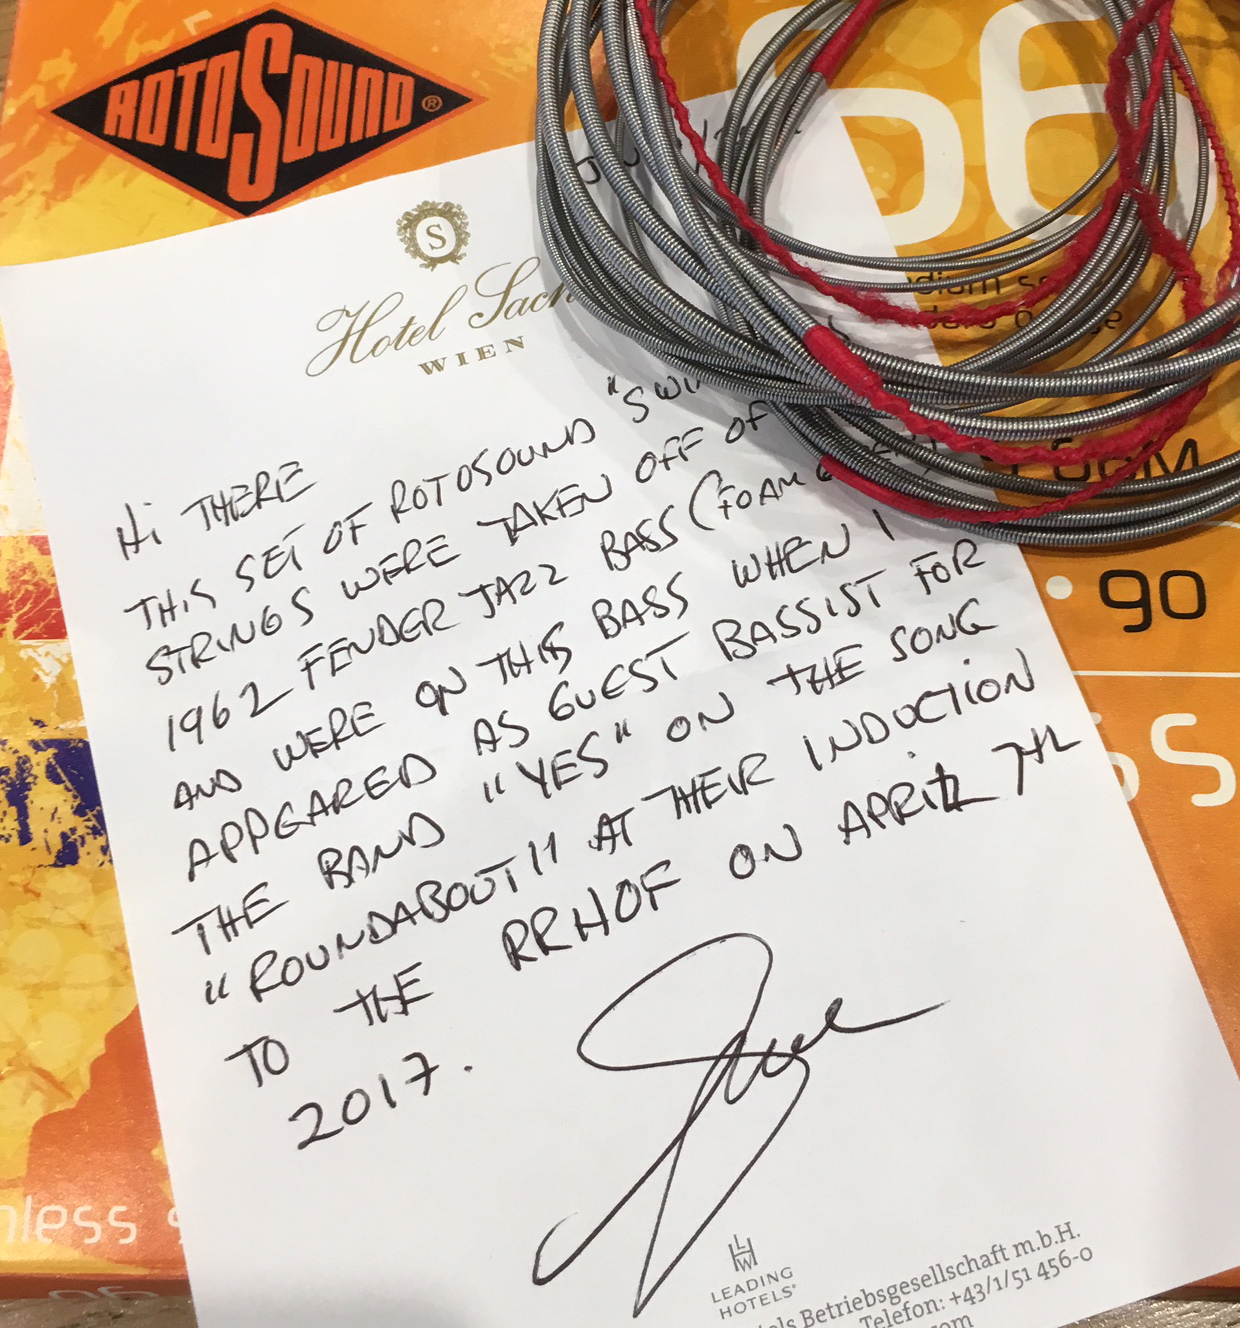 ROTOSOUND®
66
S
Hotel Sach
WIEN
Hi THERE
THIS SET OF ROTOSOUND "SWI
STRINGS WERE TAKEN OFF OF
1962 FENDER JAZZ BASS (FOAM
AND WERE ON THIS BASS WHEN I
APPEARED AS GUEST BASSIST FOR
THE BAND "YES" ON THE SONG
"ROUNDABOUT" AT THEIR INDUCTION
TO THE RRHOF ON APRIL 7TH
2017.
90
S
nless s
LEADING
HOTELS®
els Betriebsgesellschaft m.b.H.
Telefon: +43/1/51 456-0
com